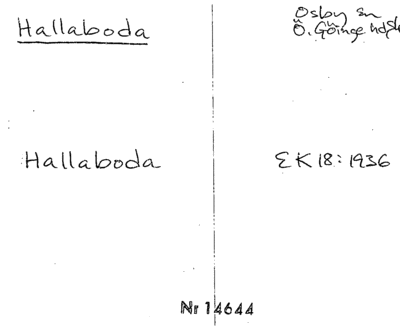 Hallaboda
Osby sn
Ö. Göinge hd Sk
Hallaboda
EK 18: 1936
Nr 14644